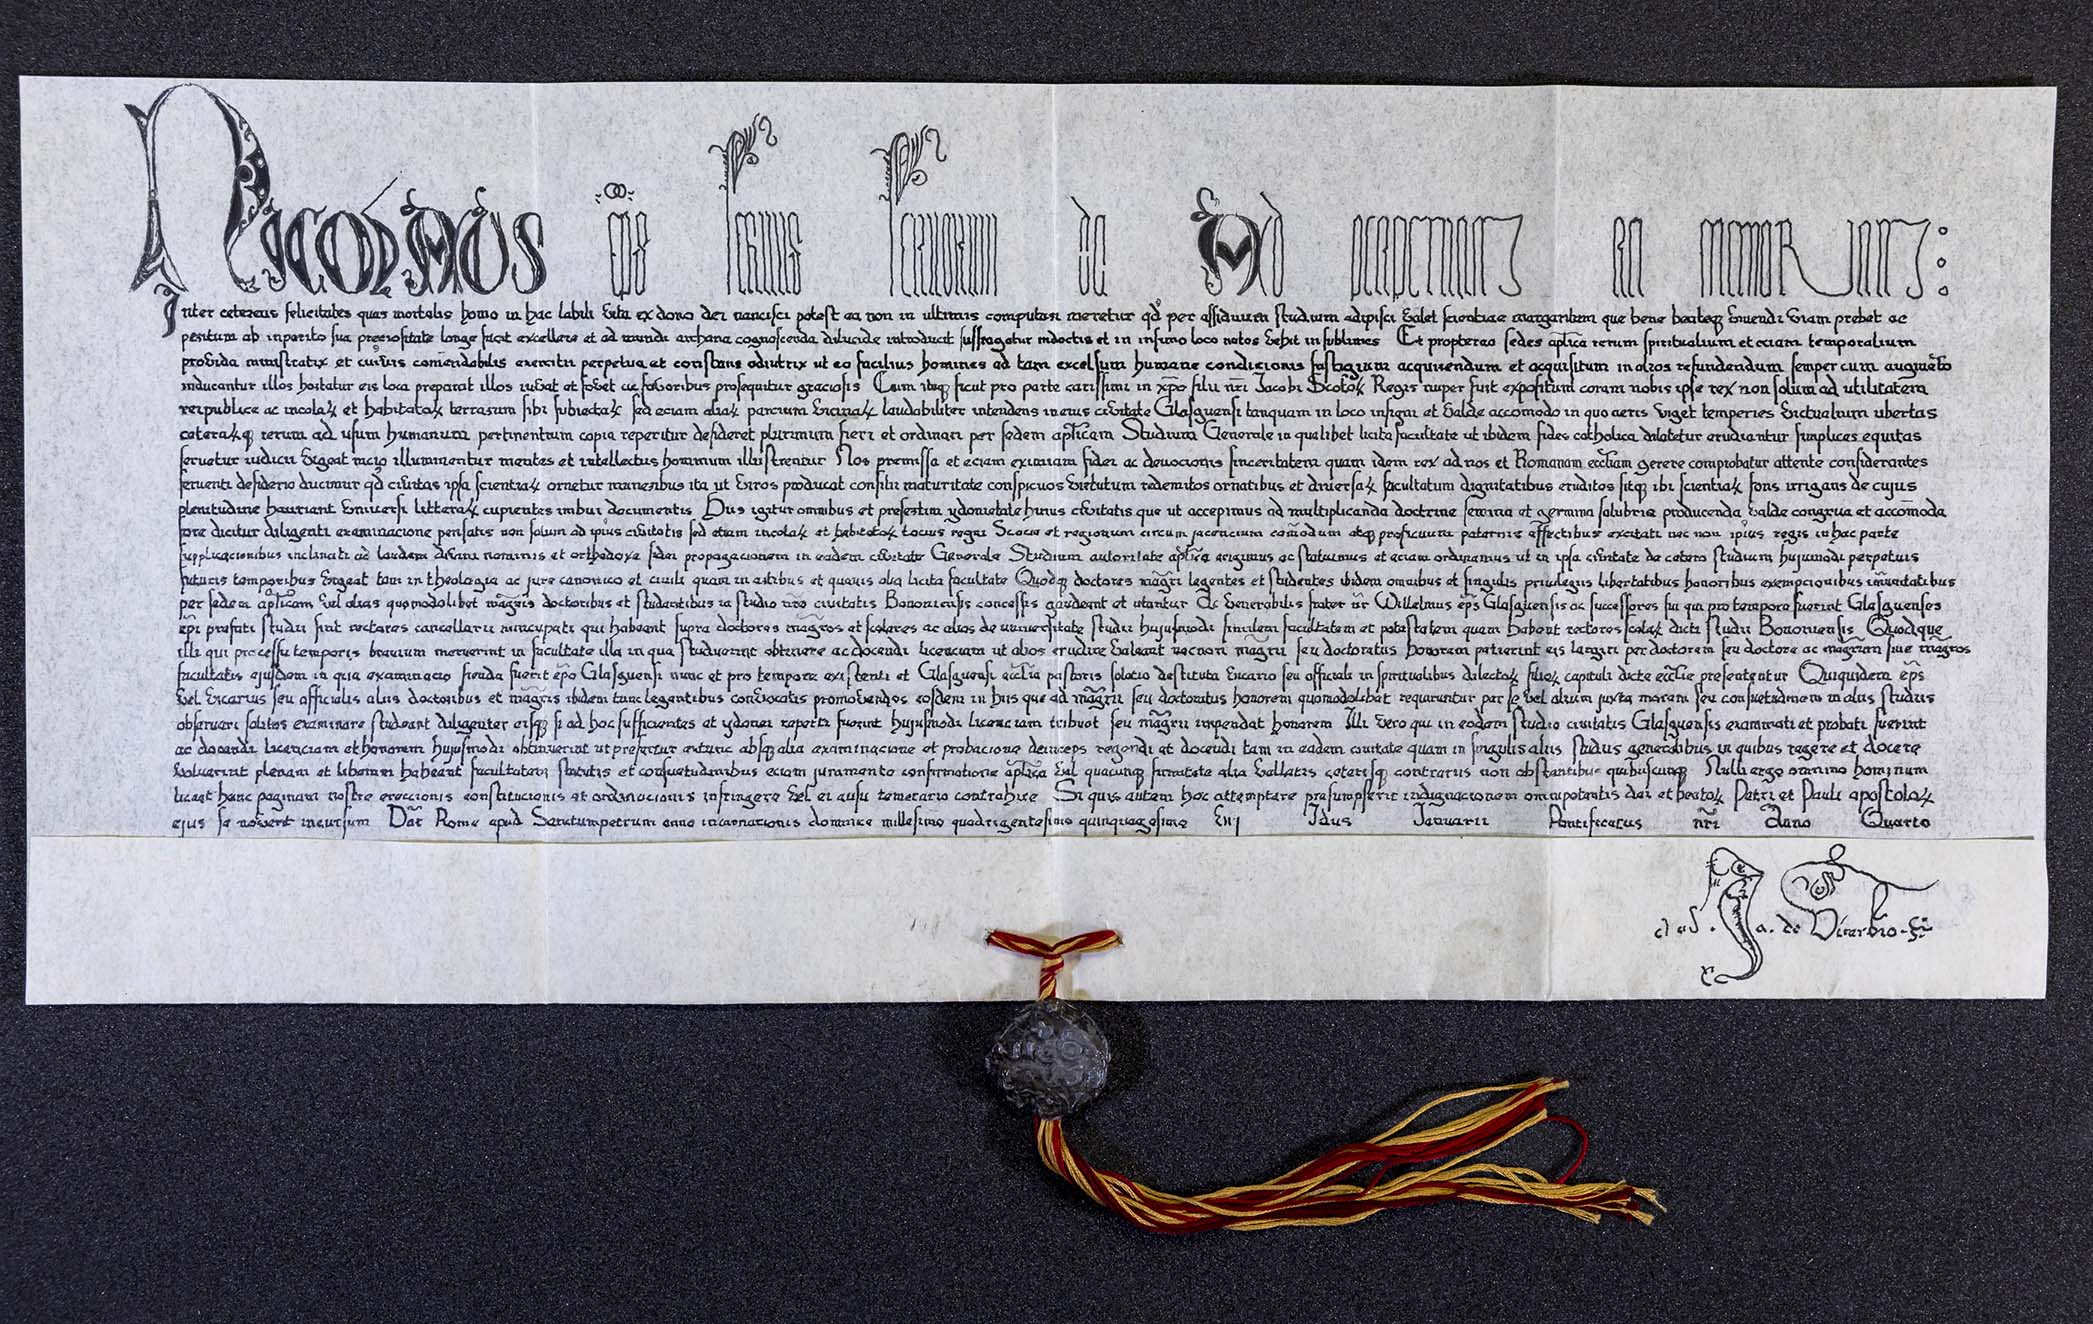 Nicolaus eps servus servorum dei Ad perpetuam rei memoriam:
Inter ceteras felicitates quas mortalis homo in hac labili vita ex dono dei nancisci potest ea non in ultimis computari meretur qd per assiduum studium adipisci valet scientiae margaritam que bene beateq vivendi viam prebet ac
peritum ab inperito sua preciositate longe facit excellere et ad mundi archana cognoscenda dilucide introducit suffragatur indoctis et in infimo loco natos vehit in sublimes Et propterea sedes aplica rerum spiritualium et eciam temporalium
provida ministratix et cuiusvis comendabilis exercitii perpetua et constans adiutrix ut eo facilius homines ad tam excelsum humane condicionis fastigium acquirendum et acquisitum in alios refundendum semper cum augmeto
inducantur illos hortatur eis loca preparat illos iuvat et fovet ac favoribus prosequitur graciosis Cum itaq sicut pro parte carissimi in xpo filii nri Jacobi Scotoꝝ Regis nuper fuit expositum coram nobis ipse rex non solum ad utilitatem
reipublice ac incolaꝝ et habitatoꝝ terrarum sibi subiectaꝝ sed eciam aliaꝝ parcium vicinaꝝ laudabiliter intendens in eius civitate Glasguensi tanquam in loco insigni et valde accomodo in quo aeris viget temperies victualium ubertas
ceteraꝝq rerum ad usum humanum pertinentium copia reperitur desideret plurimum fieri et ordinari per sedem aplicam Studium Generale in qualibet licita facultate ut ibidem fides catholica dilatetur erudiantur simplices equitas
servetur iudicii vigeat racio illuminentur mentes et intellectus hominum illustrentur Nos premissa et eciam eximiam fidei ac devocionis sinceritatem quam idem rex ad nos et Romanam eccliam gerere comprobatur attente considerantes
ferventi desiderio ducimur qd civitas ipsa scientiaꝝ ornetur muneribus ita ut viros producat consilii maturitate conspicuos virtutum redemitos ornatibus et diversaꝝ facultatum dignitatibus eruditos sitq ibi scientiaꝝ fons irrigans de cujus
plenitudine hauriant universi litteraꝝ cupientes imbui documentis Hiis igitur omnibus et presertim ydonietate hinius civitatis que ut accepimus ad multiplicanda doctrine semina et germina salubria producenda valde congrua et accomoda
fore dicitur diligenti examinacione pensatis non solum ad ipius civitatis sed etiam incolaꝝ et habitatoꝝ tocius regni Scocie et regionum circum jacencium comodum atq proficuum paternis affectibus excitati nec non ipius regis in hac parte
supplicacionibus inclinati ad laudem divini nominis et orthodoxe fidei propagacionem in eadem civitate Generale Studium autoritate aplica erigimus ac statuimus et eciam ordinamus ut in ipsa civitate de cetero studium hujusmodi perpetuis
futuris temporibus vigeat tam in theologia ac jure canonico et civili quam in artibus et quavis alia licita facultate Quodq doctores magri legentes et studentes ibidem omnibus et singulis privilegiis libertatibus honoribus exempcionibus imunitatibus
per sedem aplicam vel alias quomodolibet magris doctoribus et studentibus in studio nro civitatis Bononiensis concessis gaudeant et utantur Ac venerabilis frater nr Willelmus eps Glasguensis ac successores sui qui pro tempore fuerint Glasguenses
epi prefati studii sint rectores cancellarii nuncupati qui habeant supra doctores magros et scolares ac alios de universitate studii hujusmodi similem facultatem et potestatem quam habent rectores scolaꝝ dicti studii Bononiensis Quodque
illi qui processu temporis bravium meruerint in facultate illa in qua studuerint obtinere ac docendi licenciam ut alios erudire valeant necnon magrii seu doctoratus honorem petierint eis largiri per doctorem seu doctore ac magrum sive magros
facultatis ejusdem in qua examinacio fienda fuerit epo Glasguensi nunc et pro tempore existenti et Glasguensi ecclia pastoris solacio destituta vicario seu officiali in spiritualibus dilectoꝝ filioꝝ capituli dicte ecclie presentetur Quiquidem eps
vel vicarius seu officialis aliis doctoribus et magris ibidem tunc legentibus convocatis promovendos eosdem in hiis que ad magrii seu doctoratus honorem quomodolibet requiruntur per se vel alium juxta morem seu consuetudinem in aliis studiis
observari solitos examinare studeant diligenter eisq si ad hoc sufficientes et ydonei reperti fuerint hujusmodi licenciam tribuat seu magrii impendat honorem Illi vero qui in eodem studio civitatis Glasguensis examinati et probati fuerint
ac docendi licenciam et honorem hujusmodi obtinuerint ut prefertur extunc absq alia examinacione et probacione deinceps regendi et docendi tam in eadem civitate quam in singulis aliis studiis generalibus in quibus regere et docere
voluerint plenam et liberam habeant facultatem statutis et consuetudinibus eciam juramento confirmatione aplica vel quacunq firmitate alia vallatis ceterisq contrariis non obstantibus quibuscunq Nulli ergo omnino hominum
liceat hanc paginam nostre ereccionis constitucionis et ordinacionis infringere vel ei ausu temerario contrahire Si quis autem hoc attemptare presumpserit indignacionem omnipotentis dei et beatoꝝ Petri et Pauli apostoloꝝ
ejus se noverit incursum Dat Rome apud Sanctumpetrum anno incarnationis dominice millesimo quadrigentesimo quinquagesimo Vii Idus Januarii Pontificatus nri Anno Quarto
a. de Viterbio